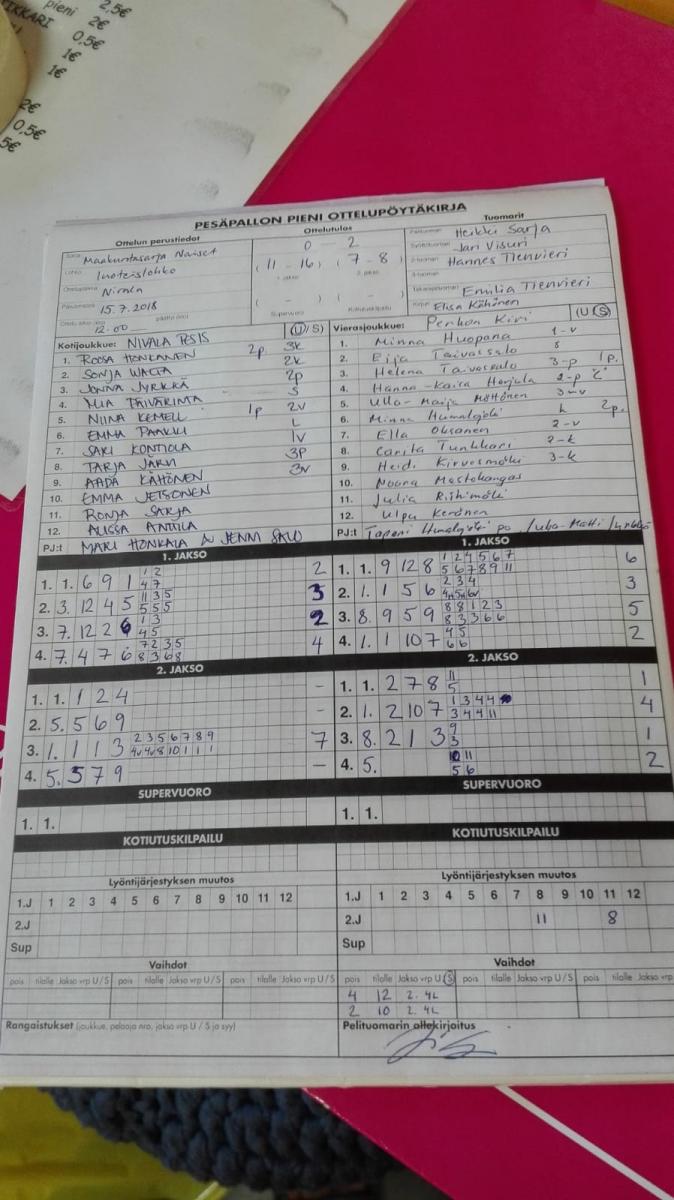 pieni 2,5€
2€
0,5€
1€
1€
2€
0,5€
5€
PESÄPALLON PIENI OTTELUPÖYTÄKIRJA
Ottelun perustiedot Ottelutulos Tuomarit
Sarja Maakuntasarja Naiset 0 2 Pelituomari Heikki Sarja
Lohko Luoteislohko (11 - 16) (7 - 8) Syöttötuomari Jari Visuri
1. jakso 2. jakso 2-tuomari Hannes Tienvieri
Ottelupaikka Nivala 3-tuomari
Päivämäärä 15.7.2018 ( - ) ( - ) Takarajatuomari Emilia Tienvieri
12.00 Supervuoro Kotiutuskilpailu Kirjuri Elisa Kähönen
Kotijoukkue: NIVALA PESIS (U/S) Vierasjoukkue: Perhon Kiri (U/S)
1. ROOSA HONKANEN 2p. 3k
2. SONJA WACCA 2k
3. JONNA JYRKKÄ 2p
4. MIA PÄIVÄRINTA S
5. NIINA KEMELL 1p 2v
6. EMMA PAAKKI L
7. SARI KONTIOLA 1v
8. TARJA JÄRVI 3p
9. AADA KÄHÖNEN 3v
10. EMMA JETSONEN
11. RONJA SARJA
12. ALISSA ANTTILA
PJ:t MARI HONKALA & JENNI SALO
1. Minna Huopana 1-v
2. Eija Taivassalo s
3. Helena Taivassalo 3-p 1p.
4. Hanna-Kaisa Harjula 2-p "C"
5. Ulla-Maija Möttönen 3-v
6. Minna Humalajoki L 2p.
7. Ella Oksanen 2-v
8. Carita Tunkkari 2-k
9. Heidi Kirvesmäki 3-k
10. Noora Mastokangas
11. Julia Riihimäki
12. Ulpu Keränen
PJ:t Tapani Humalajoki po
1. JAKSO
1. 1. 6 9 1 1 2 4 7 2
2. 3. 12 4 5 11 3 5 5 5 5 3
3. 7. 12 2 6 1 3 4 5 2
4. 7. 4 7 6 7 2 3 5 8 3 6 8 4
1. JAKSO
1. 1. 9 12 8 1 2 4 5 6 7 5 6 7 8 9 11 6
2. 1. 1 5 6 2 3 4 3
3. 8. 9 5 9 8 8 1 2 3 8 3 3 6 6 5
4. 1. 1 10 7 4 5 6 6 2
2. JAKSO
1. 1. 1 2 4 -
2. 5. 5 6 9 -
3. 1. 1 1 3 2 3 5 6 7 8 9 4v 4v 8 10 1 1 1 7
4. 5. 5 7 9 -
2. JAKSO
1. 1. 2 7 8 11 5 1
2. 1. 2 10 7 1 3 4 4 3 4 4 11 4
3. 8. 2 1 3 9 3 1
4. 5. 10 11 5 6 2
SUPERVUORO SUPERVUORO
1. 1. 1. 1.
KOTIUTUSKILPAILU KOTIUTUSKILPAILU
Lyöntijärjestyksen muutos Lyöntijärjestyksen muutos
1.J 1 2 3 4 5 6 7 8 9 10 11 12 1.J 1 2 3 4 5 6 7 8 9 10 11 12
2.J 2.J 11 8
Sup Sup
Vaihdot Vaihdot
pois tilalle Jakso vrp U / S pois tilalle Jakso vrp U / S pois tilalle Jakso vrp U / S pois tilalle Jakso vrp U / S pois tilalle Jakso vrp U / S
4 12 2. 4L
2 10 2. 4L
Rangaistukset (joukkue, pelaaja nro, jakso vrp U / S ja syy) Pelituomarin allekirjoitus